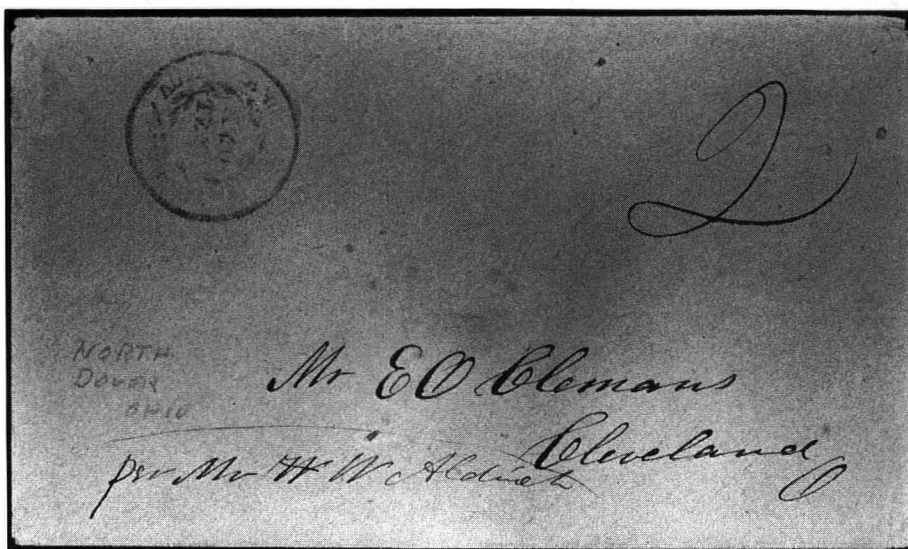 2
NORTH
DOVER
OHIO
Mr EO Clemans
Cleveland
O
per Mr H W Aldrich